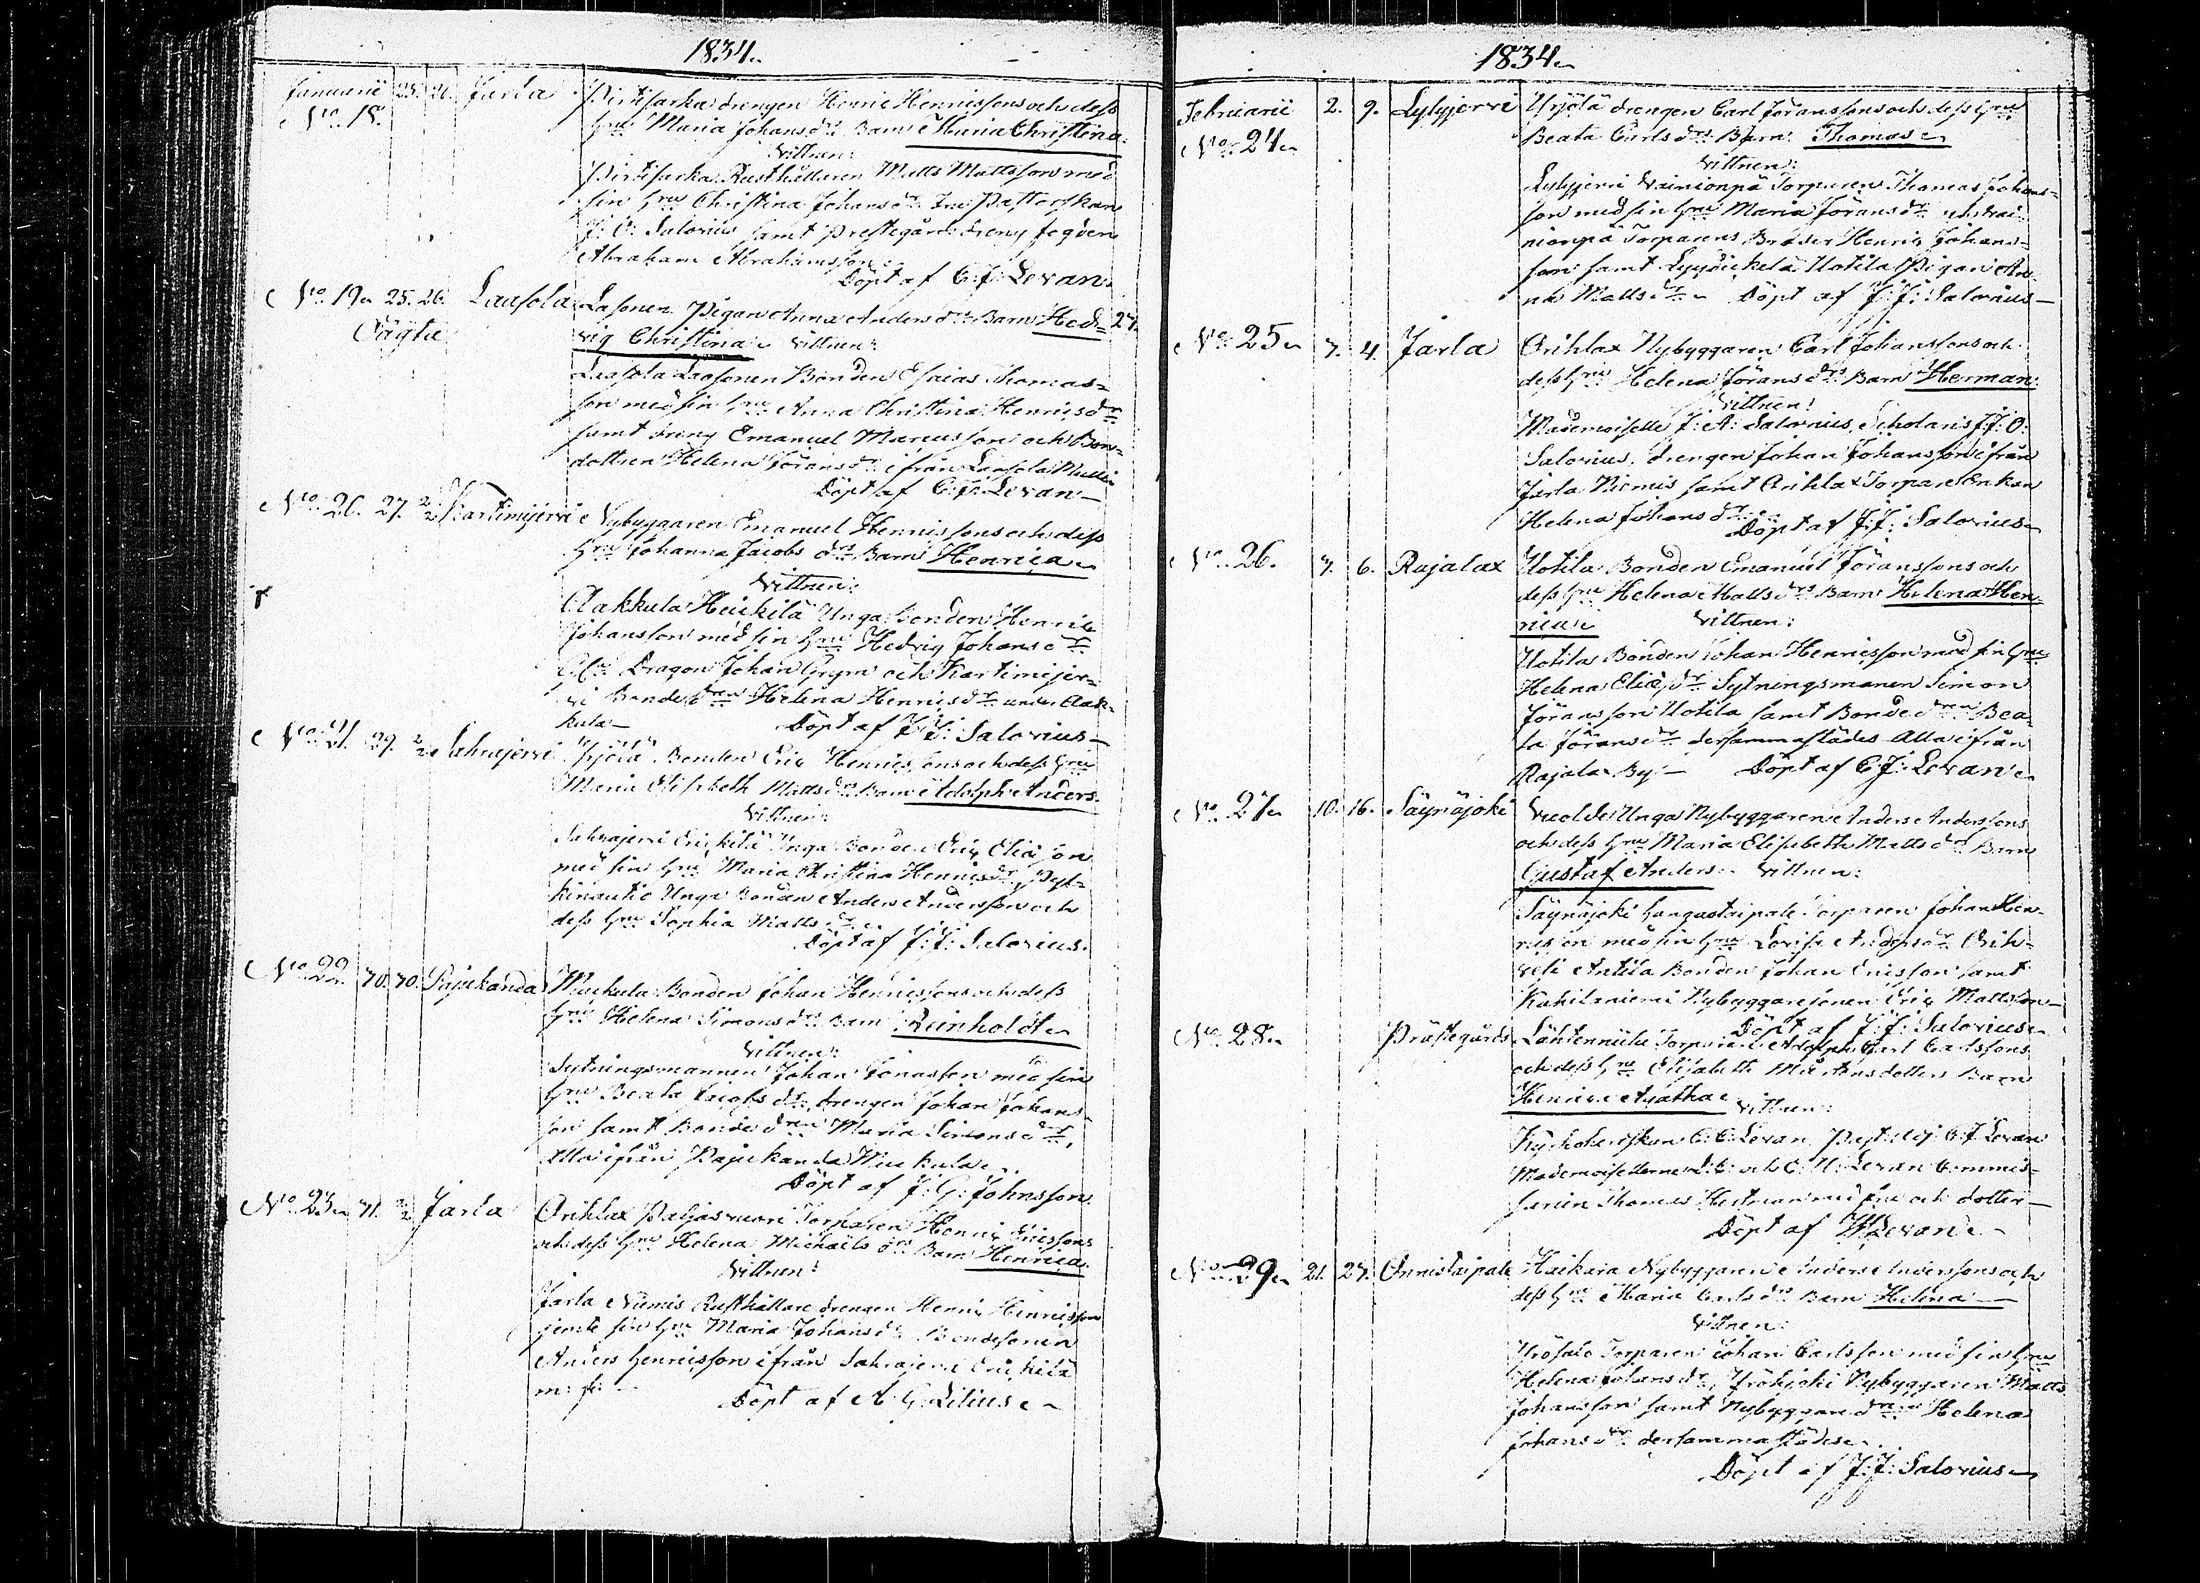 1834.
Januarii 25. 26. Jarla Pirtisarka drengen Henric Henricssons och dess
No. 18. Hru Maria Johansdr. Barn Maria Christina.
Vittnen:
Pirtisarka Rusthållaren Matts Mattsson med
sin Hru Christina Johansdr. Fru Pastorskan
J. C. Salovius samt Prestegårds dreng
Abraham Abrahamsson
Döpt af C. J. Levan.
No. 19. 25. 26. Laasola Lasonen Pigan Anna Andersdrs. Barn Hed= 27.
Oägta vig Christina. Vittnen:
Laasola Laasonen Bonden Esaias Thomas=
son med sin Hru Anna Christina Henricsdr
samt dreng Emanuel Mariusson och Bon=
dottren Helena Göransdr. ifrån Laasola
Döpt af C. J. Levan
No. 20. 27. 2/2 Kartimijervi Nybyggaren Emanuel Henricssons och dess
Hru Johanna Jacobsdrs Barn Henrica
Vittnen:
Aakkula Heickilä Unga Bonden Henric
Johansson med sin Hru Hedvig Johansdr
Dragon Johan Grym och Kartimijer=
vi Bondedren Helena Henricsdr. under Aak=
kula Döpt af J. J. Salovius
No. 21. 29. 2/2 Sahrajervi Yrjölä Bonden Eric Henricssons och dess Hru
Maria Elisabeth Mattsdrs Barn Adolph Anders.
Vittnen:
Sahrajervi Erickilä Unga Bonden Eric Eliasson
med sin Hru Maria Christina Henricsdr,
Unga Bonden Anders Andersson och
dess Hru Sophia Mattsdr.
Döpt af J. J. Salovius.
No. 22. 30. 30. Pajukanda Wuckula Bonden Johan Henricssons och dess
Hru Helena Simonsdrs Barn Reinhold
Vittnen:
Sytningsmannen Johan Jonasson med sin
Hru Beata Jacobsdr, drengen Johan Johans=
son samt Bondedren Maria Simonsdr,
Alla ifrån Pajukanda Wuckula.
Döpt af J. G. Johnsson
No. 23 31. 2/2 Jarla Orihlax Paljasvuori Torparen Henric Ericssons
och dess Hru Helena Michaelsdrs Barn Henrica.
Vittnen:
Jarla Niemis Rusthållare drengen Henric Henricsson
jemte sin Hru Maria Johansdr Bondesonen
Anders Henricsson ifrån Sahrajervi Erickilä
m: fl:
Döpt af A. G. Lilius
1834.
Februarii 2. 9. Lylyjervi Yrjölä drengen Carl Göranssons och dess Hru
No. 24. Beata Carlsdrs Barn Thomas
Vittnen:
Lylyjervi Vainionpä Torparen Thomas Johans=
son med sin Hru Maria Göransdr
nionpä Torparens Broder Henric Johans=
son samt Uotila Pigan An=
na Mattsdr. Döpt af J. J. Salovius
No. 25. 3. 4. Jarla Orihlax Nybyggaren Carl Johanssons och
dess Hru Helena Göransdrs Barn Herman.
Vittnen:
Mademoiselle J. A. Salovius, Scholaris J. J. O.
Salovius, drengen Johan Johansson ifrån
Jarla Niemis samt Orihlax Torpare Enkan
Helena Johansdr.
Döpt af J. J. Salovius
No. 26. 3. 6. Rajalax Uotila Bonden Emanuel Göranssons och
dess Hru Helena Mattsdrs Barn Helena Hen=
rica. Vittnen:
Uotila Bonden Johan Henricsson med sin Hru
Helena Eliasdr. Sytningsmannen Simon
Göransson Uotila samt Bondedren Bea=
ta Göransdr. dersammastädes Alla ifrån
Rajala By. Döpt af C. J. Levan
No. 27. 10. 16. Säynäjoki Unga Nybyggaren Anders Anderssons
och dess Hru Maria Elisabeth Mattsdrs Barn
Gustaf Anders. Vittnen:
Säynäjoki Torparen Johan Hen=
ricsson med sin Hru Lovisa Andersdr. Orih=
veli Antila Bonden Johan Ericsson samt
Kukilaniemi Nybyggaresonen Eric Mattsson
Döpt af J. J. Salovius
No. 28. Prästegårds Torparen Adolph Carl Carlssons
och dess Hru Elisabeth Mårtensdotters Barn
Henrica Agatha. Vittnen:
Kyrkoherdskan C. C. Levan, Past. Adj. C. J. Levan
Mademoisellerne L. C. och C. H. Levan Commis=
sarien Thomas Hartman med Fru och dotter
Döpt af W Levan
No. 29. 21. 23. Onnistaipale Haikara Nybyggaren Anders Anderssons och
dess Hru Maria Carlsdrs Barn Helena
Vittnen:
Torparen Johan Carlsson med sin Hru
Helena Johansdr, Nybyggaren Matts
Johansson samt Nybyggaredren Helena
Johansdr. dersammastädes.
Döpt af J. J. Salovius